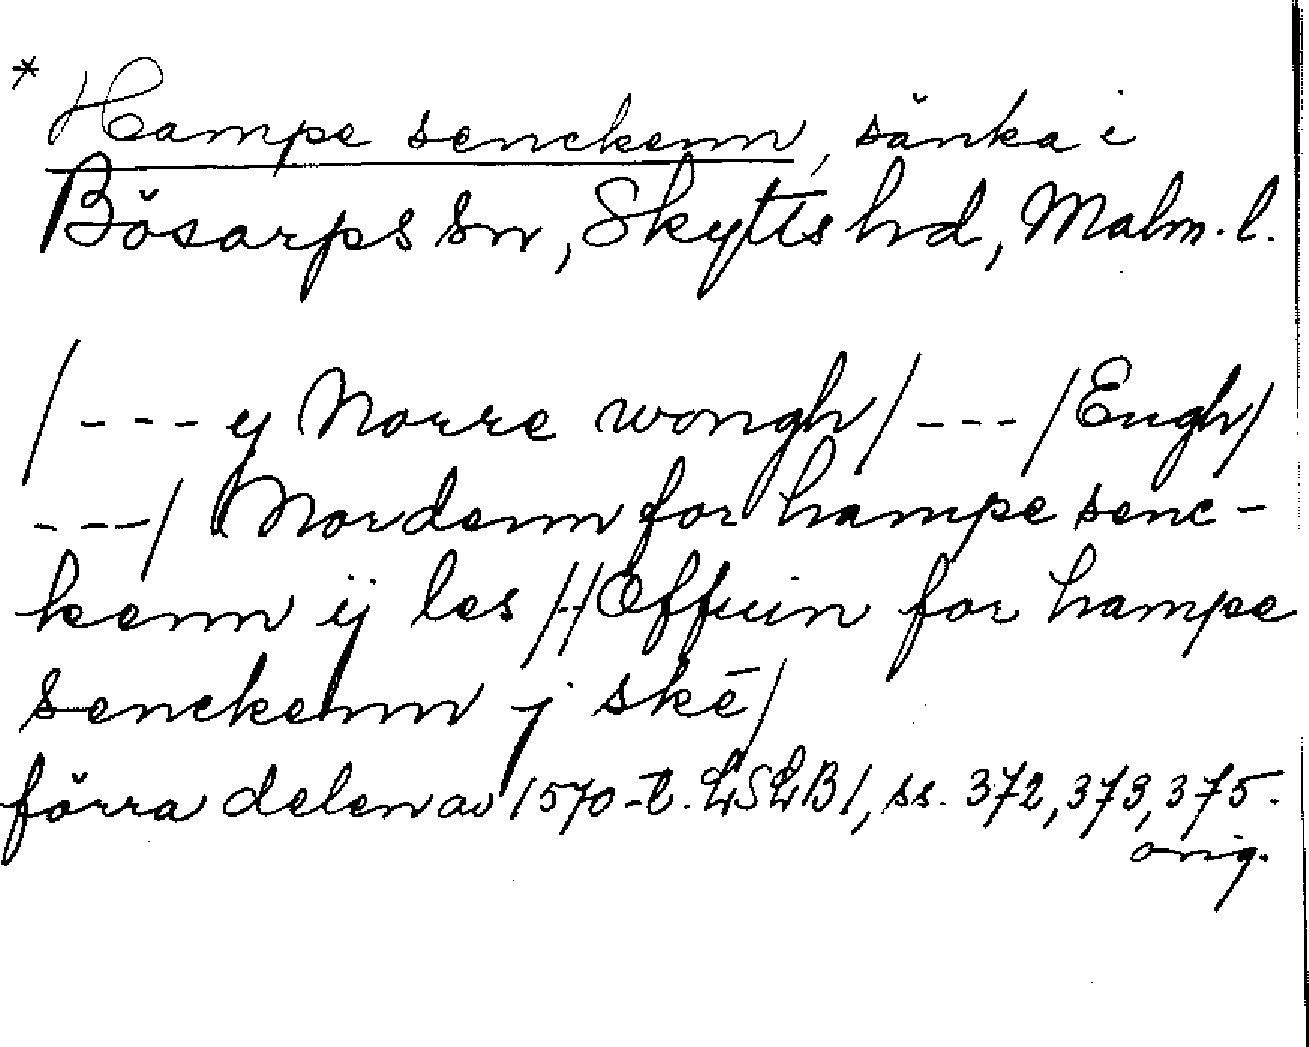 * Hampe senckenn, sänka i
Bösarps sn, Skytts hd, Malm. l.
/---y Norre wongh/---/Engh/
---/ Nordenn for hampe senc-
kenn ij les // Offuin for hampe
senckenn j skē/
förra delen av 1570-t. LSLB1, ss. 372, 373, 375.
orig.